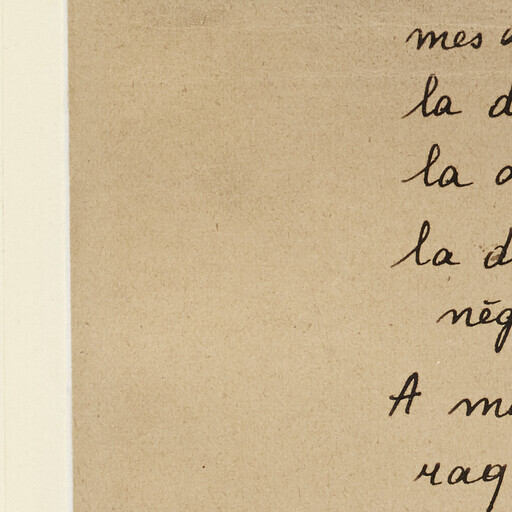 mes
la d
la
la d
nég
A m
raq